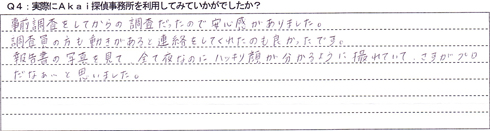 Q4：実際にＡｋａｉ探偵事務所を利用してみていかがでしたか？
事前調査をしてからの調査だったので安心感がありました。
調査員の方も動きがあると連絡をしてくれたのも良かったです。
報告書の写真を見て、全て夜なのにハッキリ顔が分かるように撮れていて、さすがプロ
だなぁ〜と思いました。